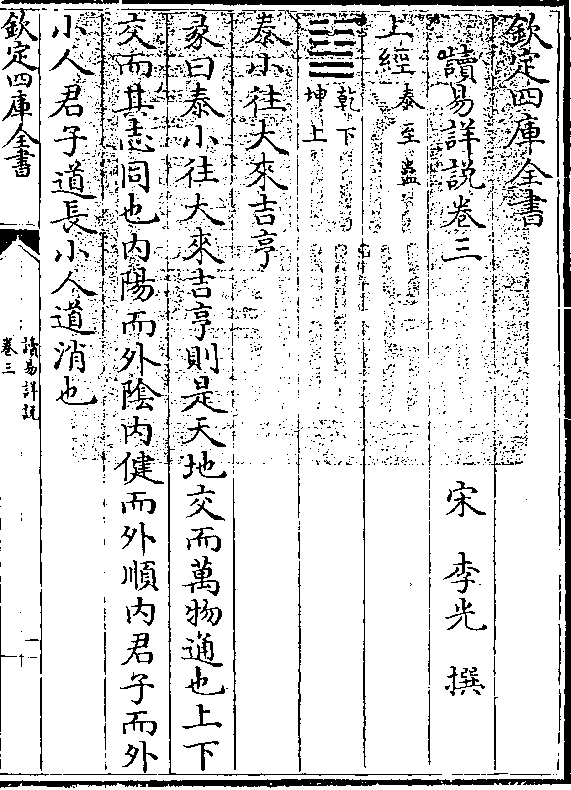 欽定四庫全書
讀易詳說卷三
宋 李光 撰
上經 泰至蠱
乾下
坤上
泰小往大來吉亨
彖曰泰小往大來吉亨則是天地交而萬物通也上下
交而其志同也内陽而外陰内健而外順内君子而外
小人君子道長小人道消也
欽定四庫全書
讀易詳說
卷三
一